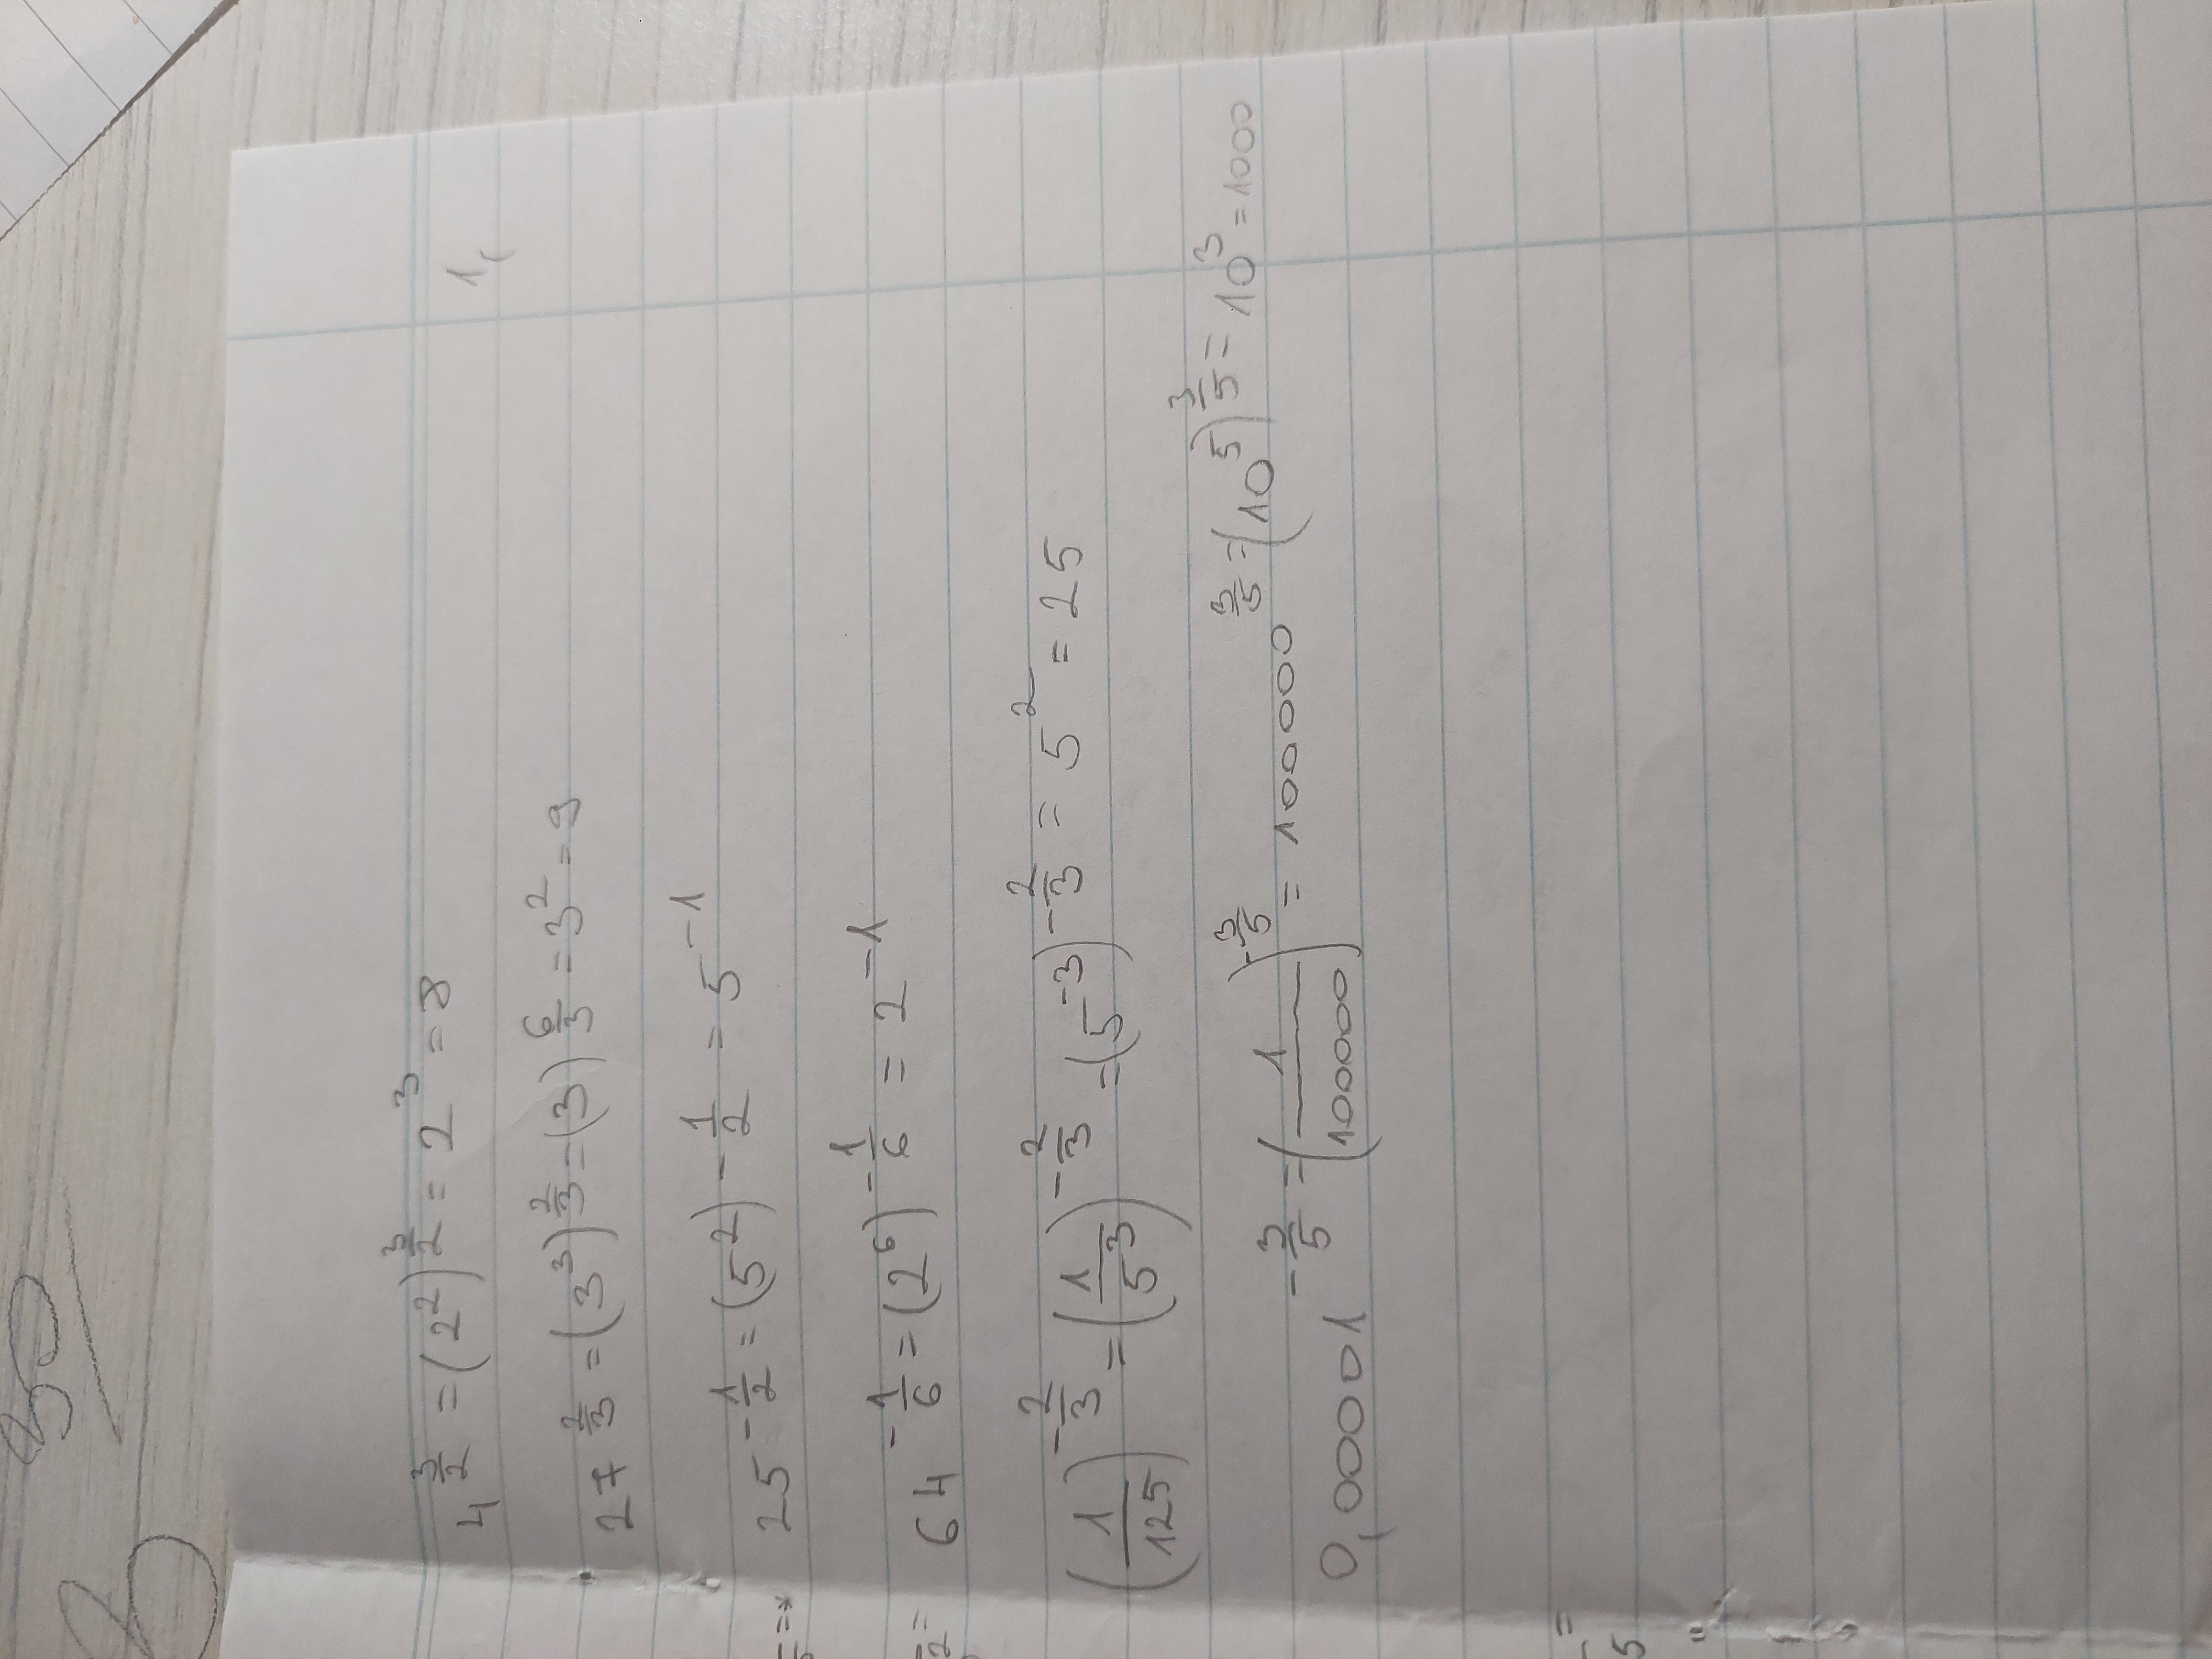 1,
4^(3/2) = (2^2)^(3/2) = 2^3 = 8
27^(2/3) = (3^3)^(2/3) = (3)^(6/3) = 3^2 = 9
25^(-1/2) = (5^2)^(-1/2) = 5^(-1)
64^(-1/6) = (2^6)^(-1/6) = 2^(-1)
(1/125)^(-2/3) = (1/5^3)^(-2/3) = (5^(-3))^(-2/3) = 5^2 = 25
0,00001^(-3/5) = (1/100000)^(-3/5) = 100000^(3/5) = (10^5)^(3/5) = 10^3 = 1000